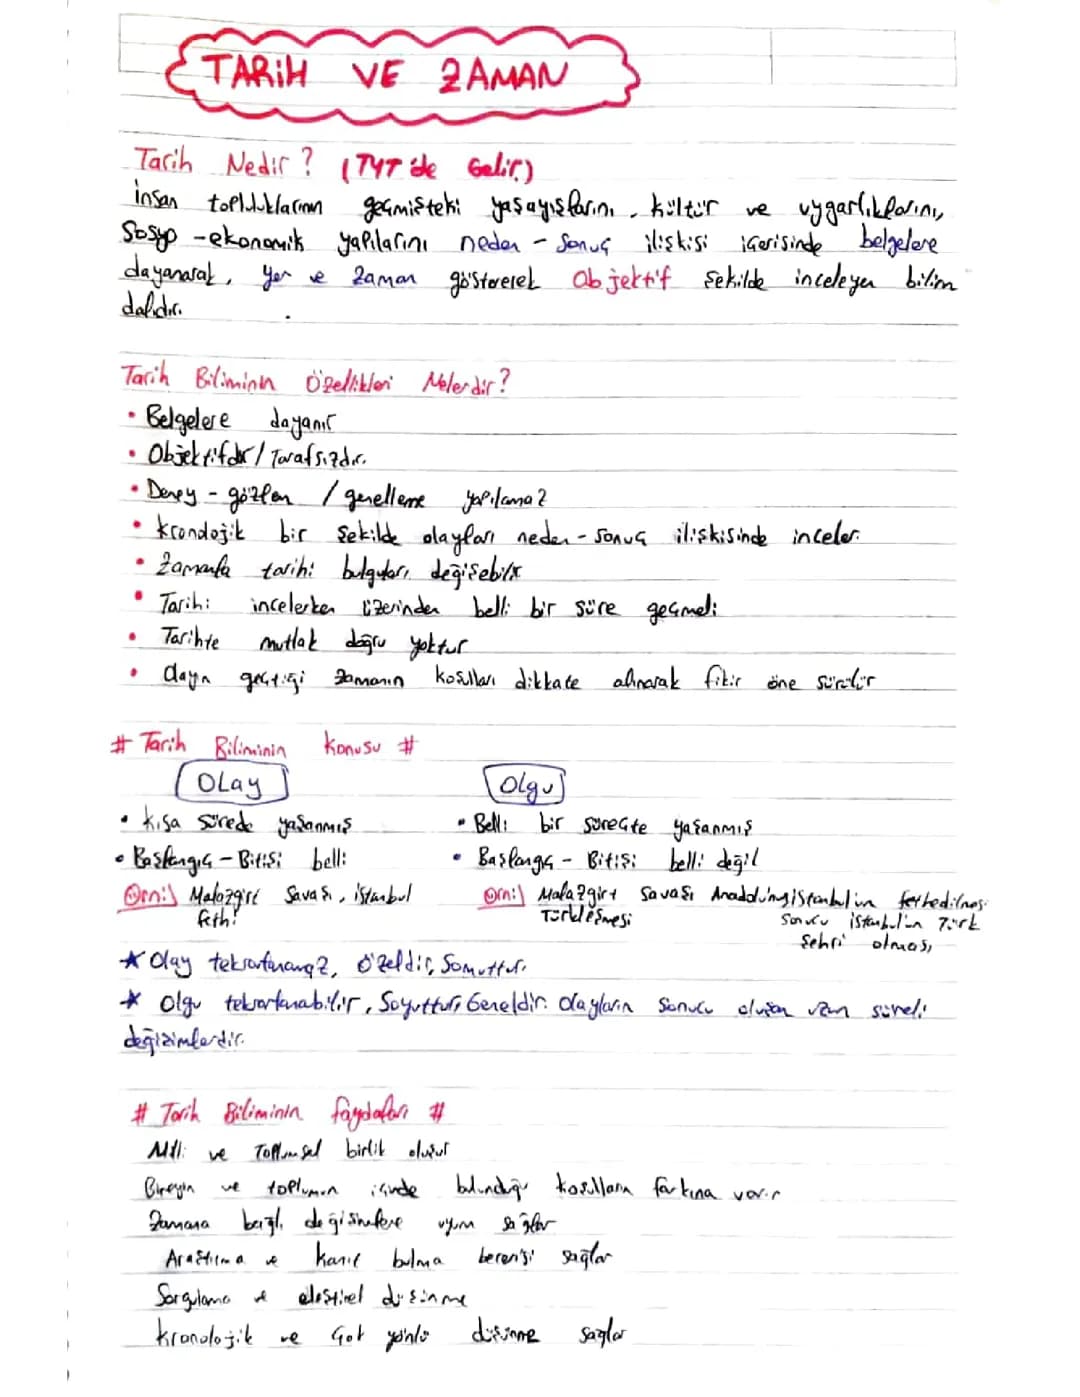 TARİH VE ZAMAN
Tarih Nedir? (TYT'de Gelir)
İnsan topluluklarının geçmişteki yaşayışlarını, kültür ve uygarlıklarını,
Sosyo-ekonomik yapılarını neden-sonuç ilişkisi içerisinde belgelere
dayanarak, yer ve zaman göstererek Objektif şekilde inceleyen bilim
dalıdır.
Tarih Biliminin Özellikleri Nelerdir?
• Belgelere dayanır
• Objektifdir/Tarafsızdır.
• Deney-gözlem / genelleme yapılamaz
• Krondojik bir şekilde olayları neden-sonuç ilişkisinde inceler.
• Zamanla tarihi bulguları değişebilir
• Tarihi incelerken üzerinden belli bir süre geçmeli
• Tarihte mutlak doğru yoktur
• Olayın geçtiği zamanın koşulları dikkate alınarak fikir öne sürülür
# Tarih Biliminin Konusu #
Olay Olgu
• Kısa sürede yaşanmış • Belli bir süreçte yaşanmış
• Başlangıç-Bitişi belli • Başlangıç-Bitişi belli değil
Örn: Malazgirt Savaşı, İstanbul Örn: Malazgirt Savaşı Anadolu'nun İstanbul'un fethedilmesi
fethi Türkleşmesi Sonucu İstanbul'un Türk
Şehri olması
★ Olay tekrarlanamaz, özeldir, Somuttur.
★ Olgu tekrarlanabilir, Soyuttur, Geneldir. Olayların sonucu oluşan uzun süreli
değişimlerdir.
# Tarih Biliminin faydaları #
Milli ve Toplumsal birlik oluşur
Bireyin ve toplumun içinde bulunduğu koşulların farkına varır
Zamana bağlı değişimlere uyum sağlar
Araştırma ve kanıt bulma becerisi sağlar
Sorgulama ve eleştirel düşünme
Kronolojik ve Çok yönlü düşünme sağlar